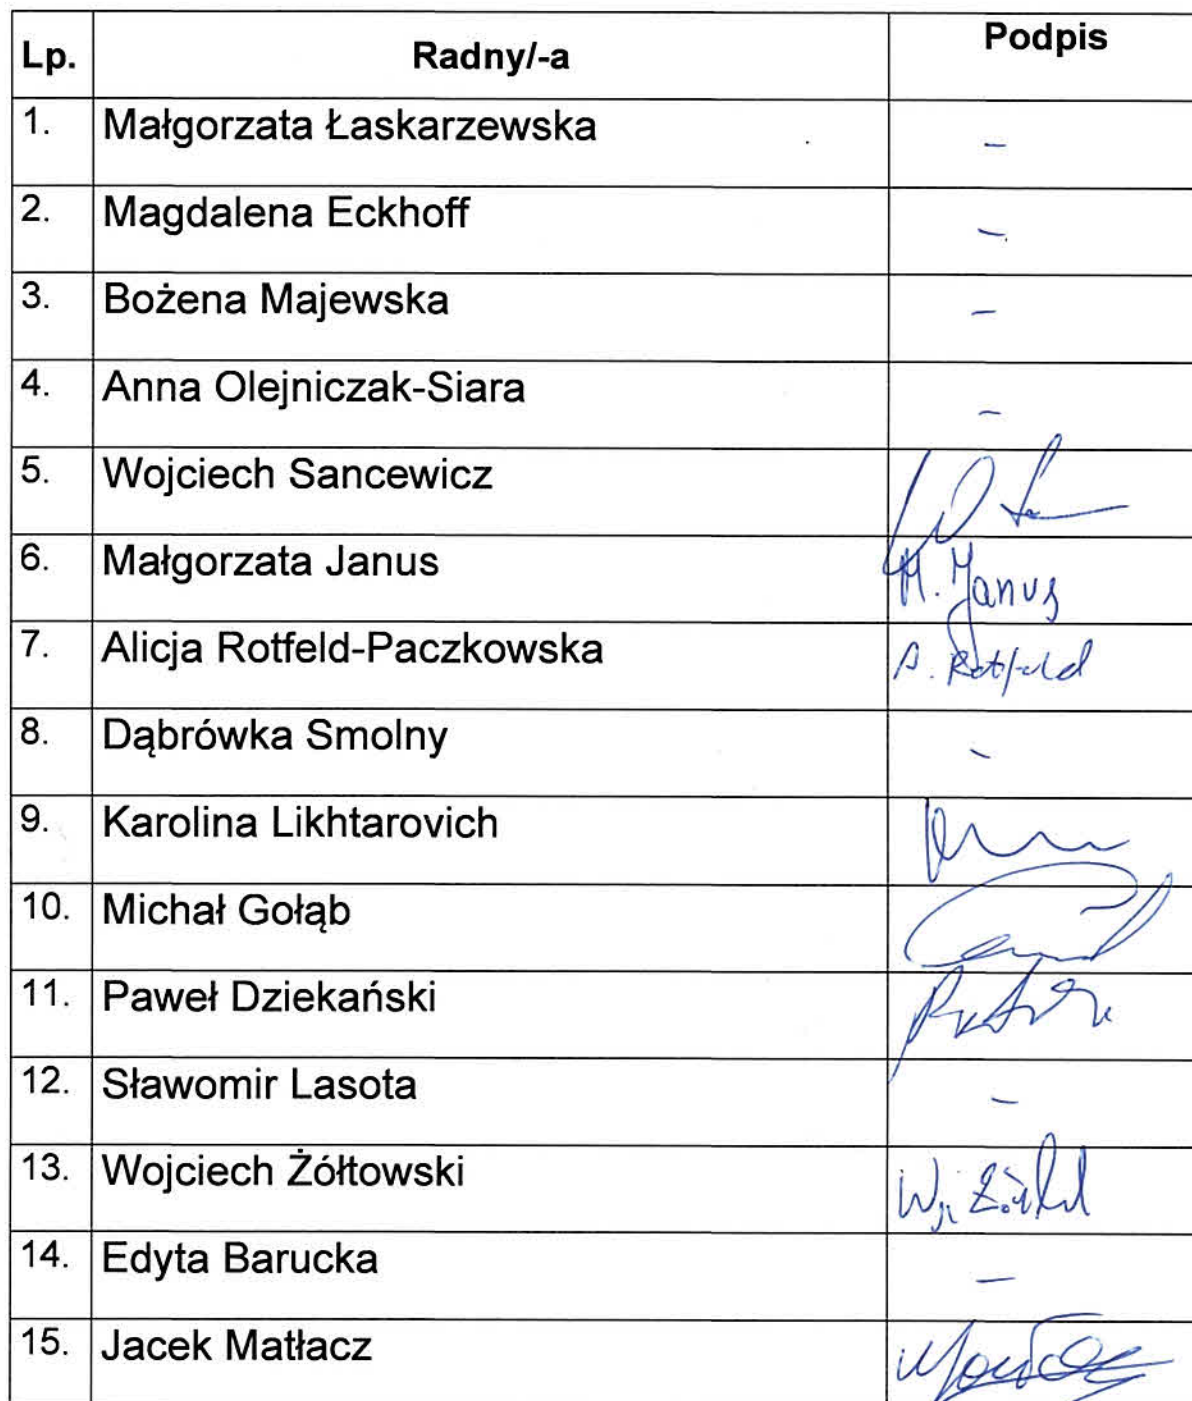 Lp. Radny/-a Podpis
1. Małgorzata Łaskarzewska –
2. Magdalena Eckhoff –
3. Bożena Majewska –
4. Anna Olejniczak-Siara –
5. Wojciech Sancewicz
6. Małgorzata Janus M. Janus
7. Alicja Rotfeld-Paczkowska A. Rotfeld
8. Dąbrówka Smolny –
9. Karolina Likhtarovich
10. Michał Gołąb
11. Paweł Dziekański
12. Sławomir Lasota –
13. Wojciech Żółtowski
14. Edyta Barucka –
15. Jacek Matłacz